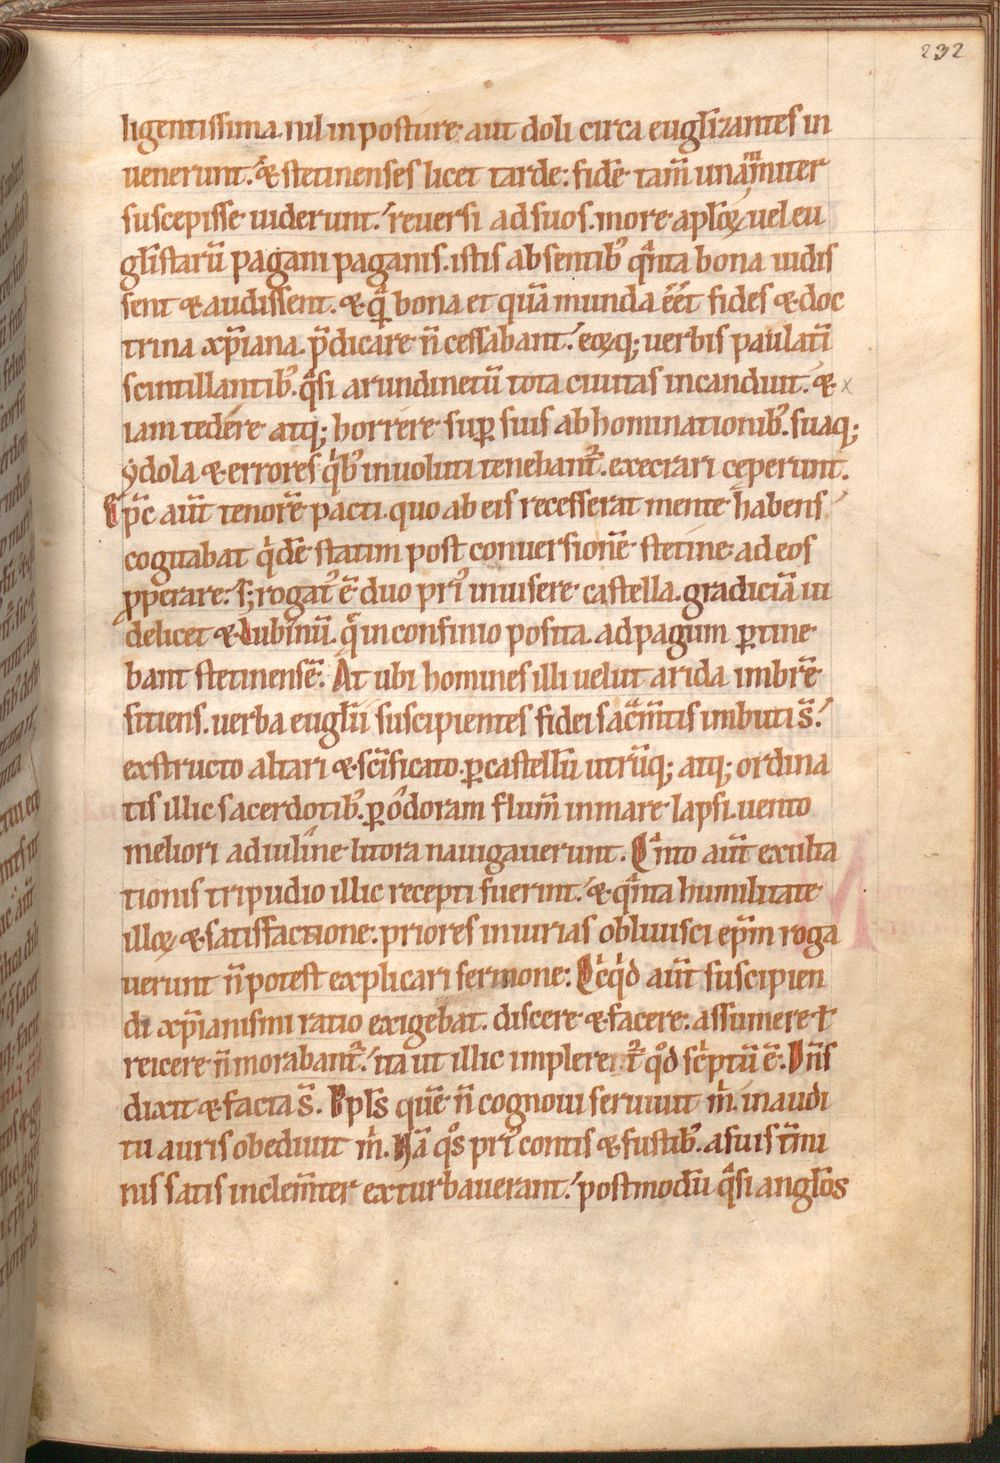 232
ligentissima. nil inposture aut doli circa eugl̄izantes in
uenerunt. & stetinenses licet tarde: fidē tam̄ unam̄miter
suscepisse uiderunt. reuersi ad suos. more apl̄oꝝ uel eu
gl̄istarū pagani paganis. istis absentibꝰ qͣnta bona uidis
sent & audissent. & qͣ bona et quā munda eēt fides & doc
trina xp̄iana. p̄dicare n̄ cessabant. eoꝝq; uerbis paulatī
scintillantibꝰ. qͣsi arundinetū tota ciuitas incanduit. &
iam tedere atq; horrere suꝑ suis abhominationibꝰ. suaq;
ydola & errores qͥbꝰ inuoluti tenebant᷑. execrari ceperunt.
Ep̄c aut̄ tenorē pacti. quo ab eis recesserat mente habens
cogitabat qͥdē statim post conuersionē stetine ad eos
ꝓperare. s; rogatꝰ ē duo priꝰ inuisere castella. gradiciā ui
delicet & lubinū. q̄ in confinio posita. ad pagum ꝑtine
bant stetinensē. At ubi homines illi uelut arida imbrē
sitiens. uerba eugl̄ii suscipientes fidei sacͣm̄tis imbuti s̄.
exstructo altari & sc̄ificato. ꝑ castellū utrūq; atq; ordina
tis illic sacerdotibꝰ. ꝑ odoram flum̄ in mare lapsi. uento
meliori ad iuline litora nauigauerunt. Qͣnto aut̄ exulta
tionis tripudio illic recepti fuerint. & qͣnta humilitate
illoꝝ & satisfactione. priores iniurias obliuisci ep̄m roga
uerunt n̄ potest explicari sermone. Qͥcqͥd aut̄ suscipien
di xp̄ianismi ratio exigebat. discere & facere. assumere ł
reicere n̄ morabant᷑. ita ut illic implere t᷑ qͦd sc̄ptū ē. Dn̄s
dixit & facta s̄. Ppl̄s quē n̄ cognoui seruiuit m̄. in audi
tu auris obediuit m̄. Nā qͦs priꝰ contis & fustibꝰ. a suis t̄mi
nis satis inclem̄ter exturbauerant. postmodū qͣsi angl̄os